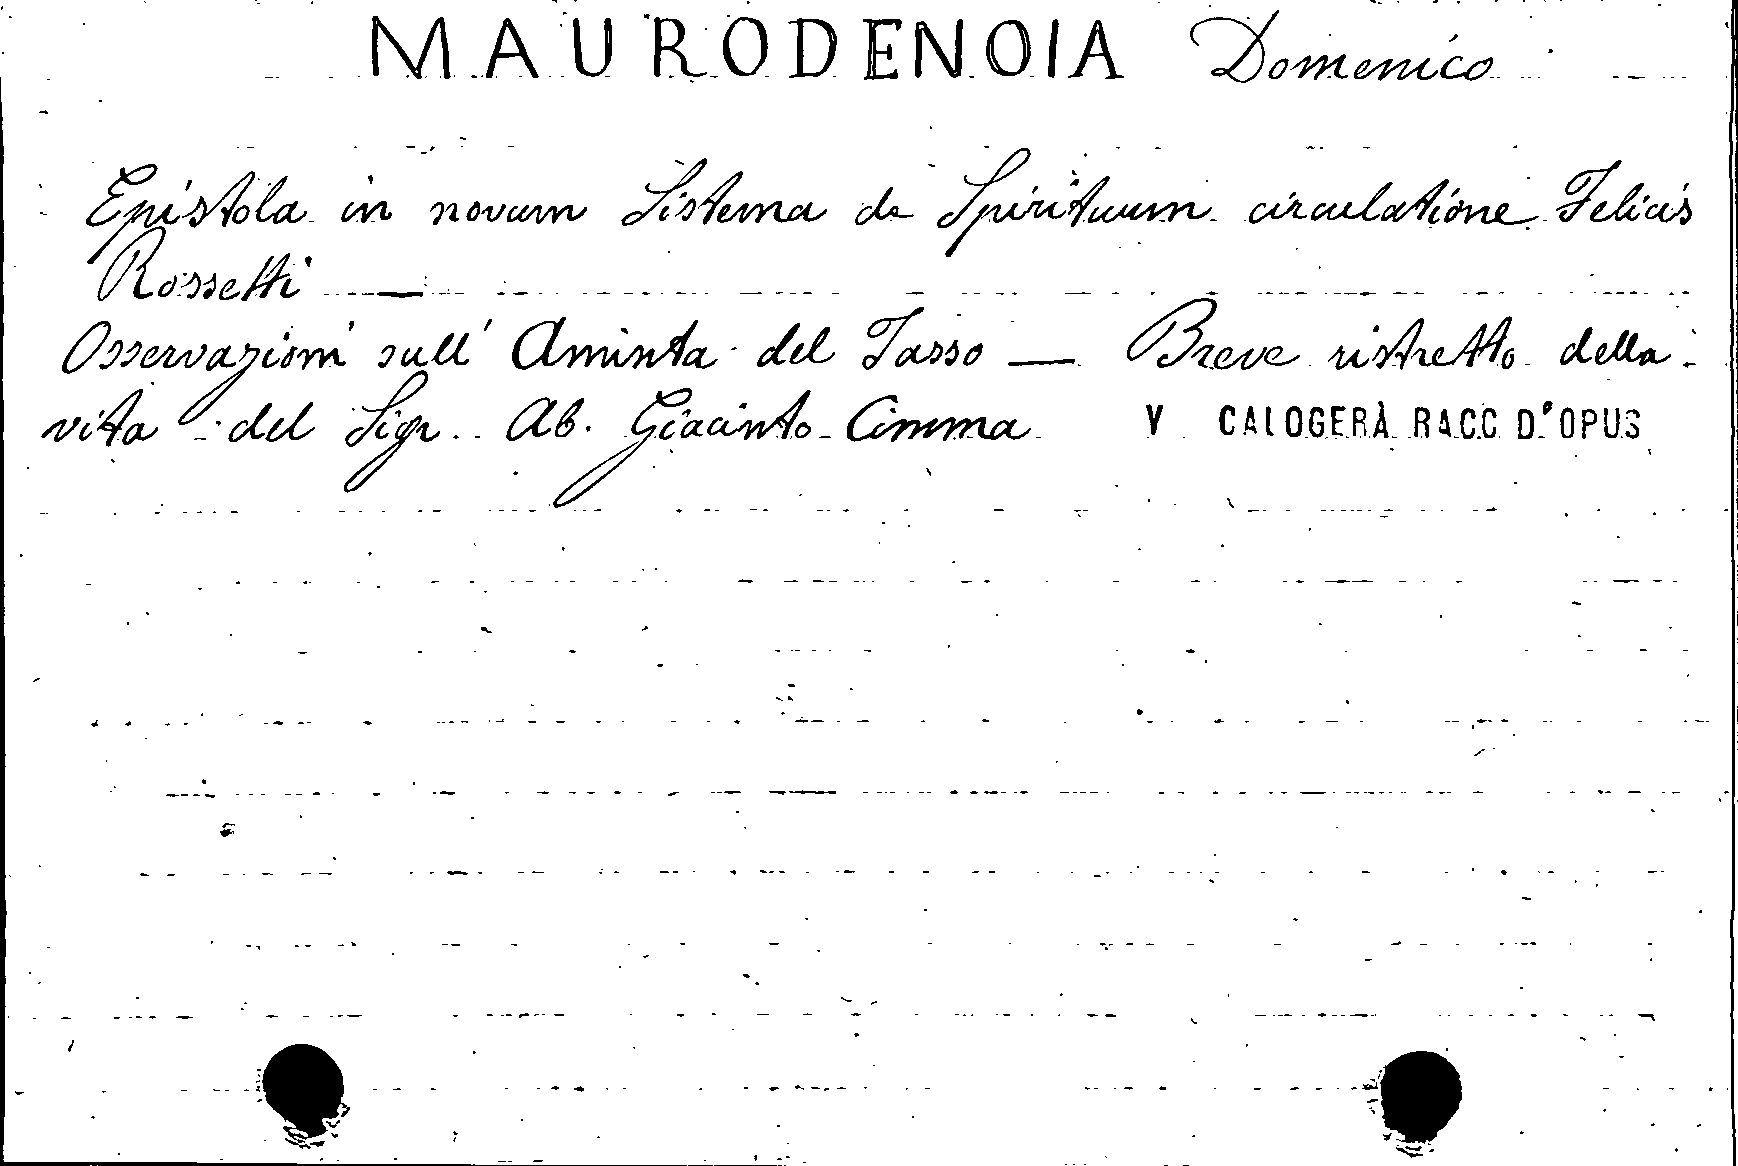 MAURODENOIA Domenico
Epistola in novum Sistema de Spirituum circulatione Felicis
Rossetti —
Osservazioni sull' Aminta del Tasso — Breve ristretto della
vita del Sigr. Ab. Giacinto Cimma V CALOGERÀ RACC D'OPUS